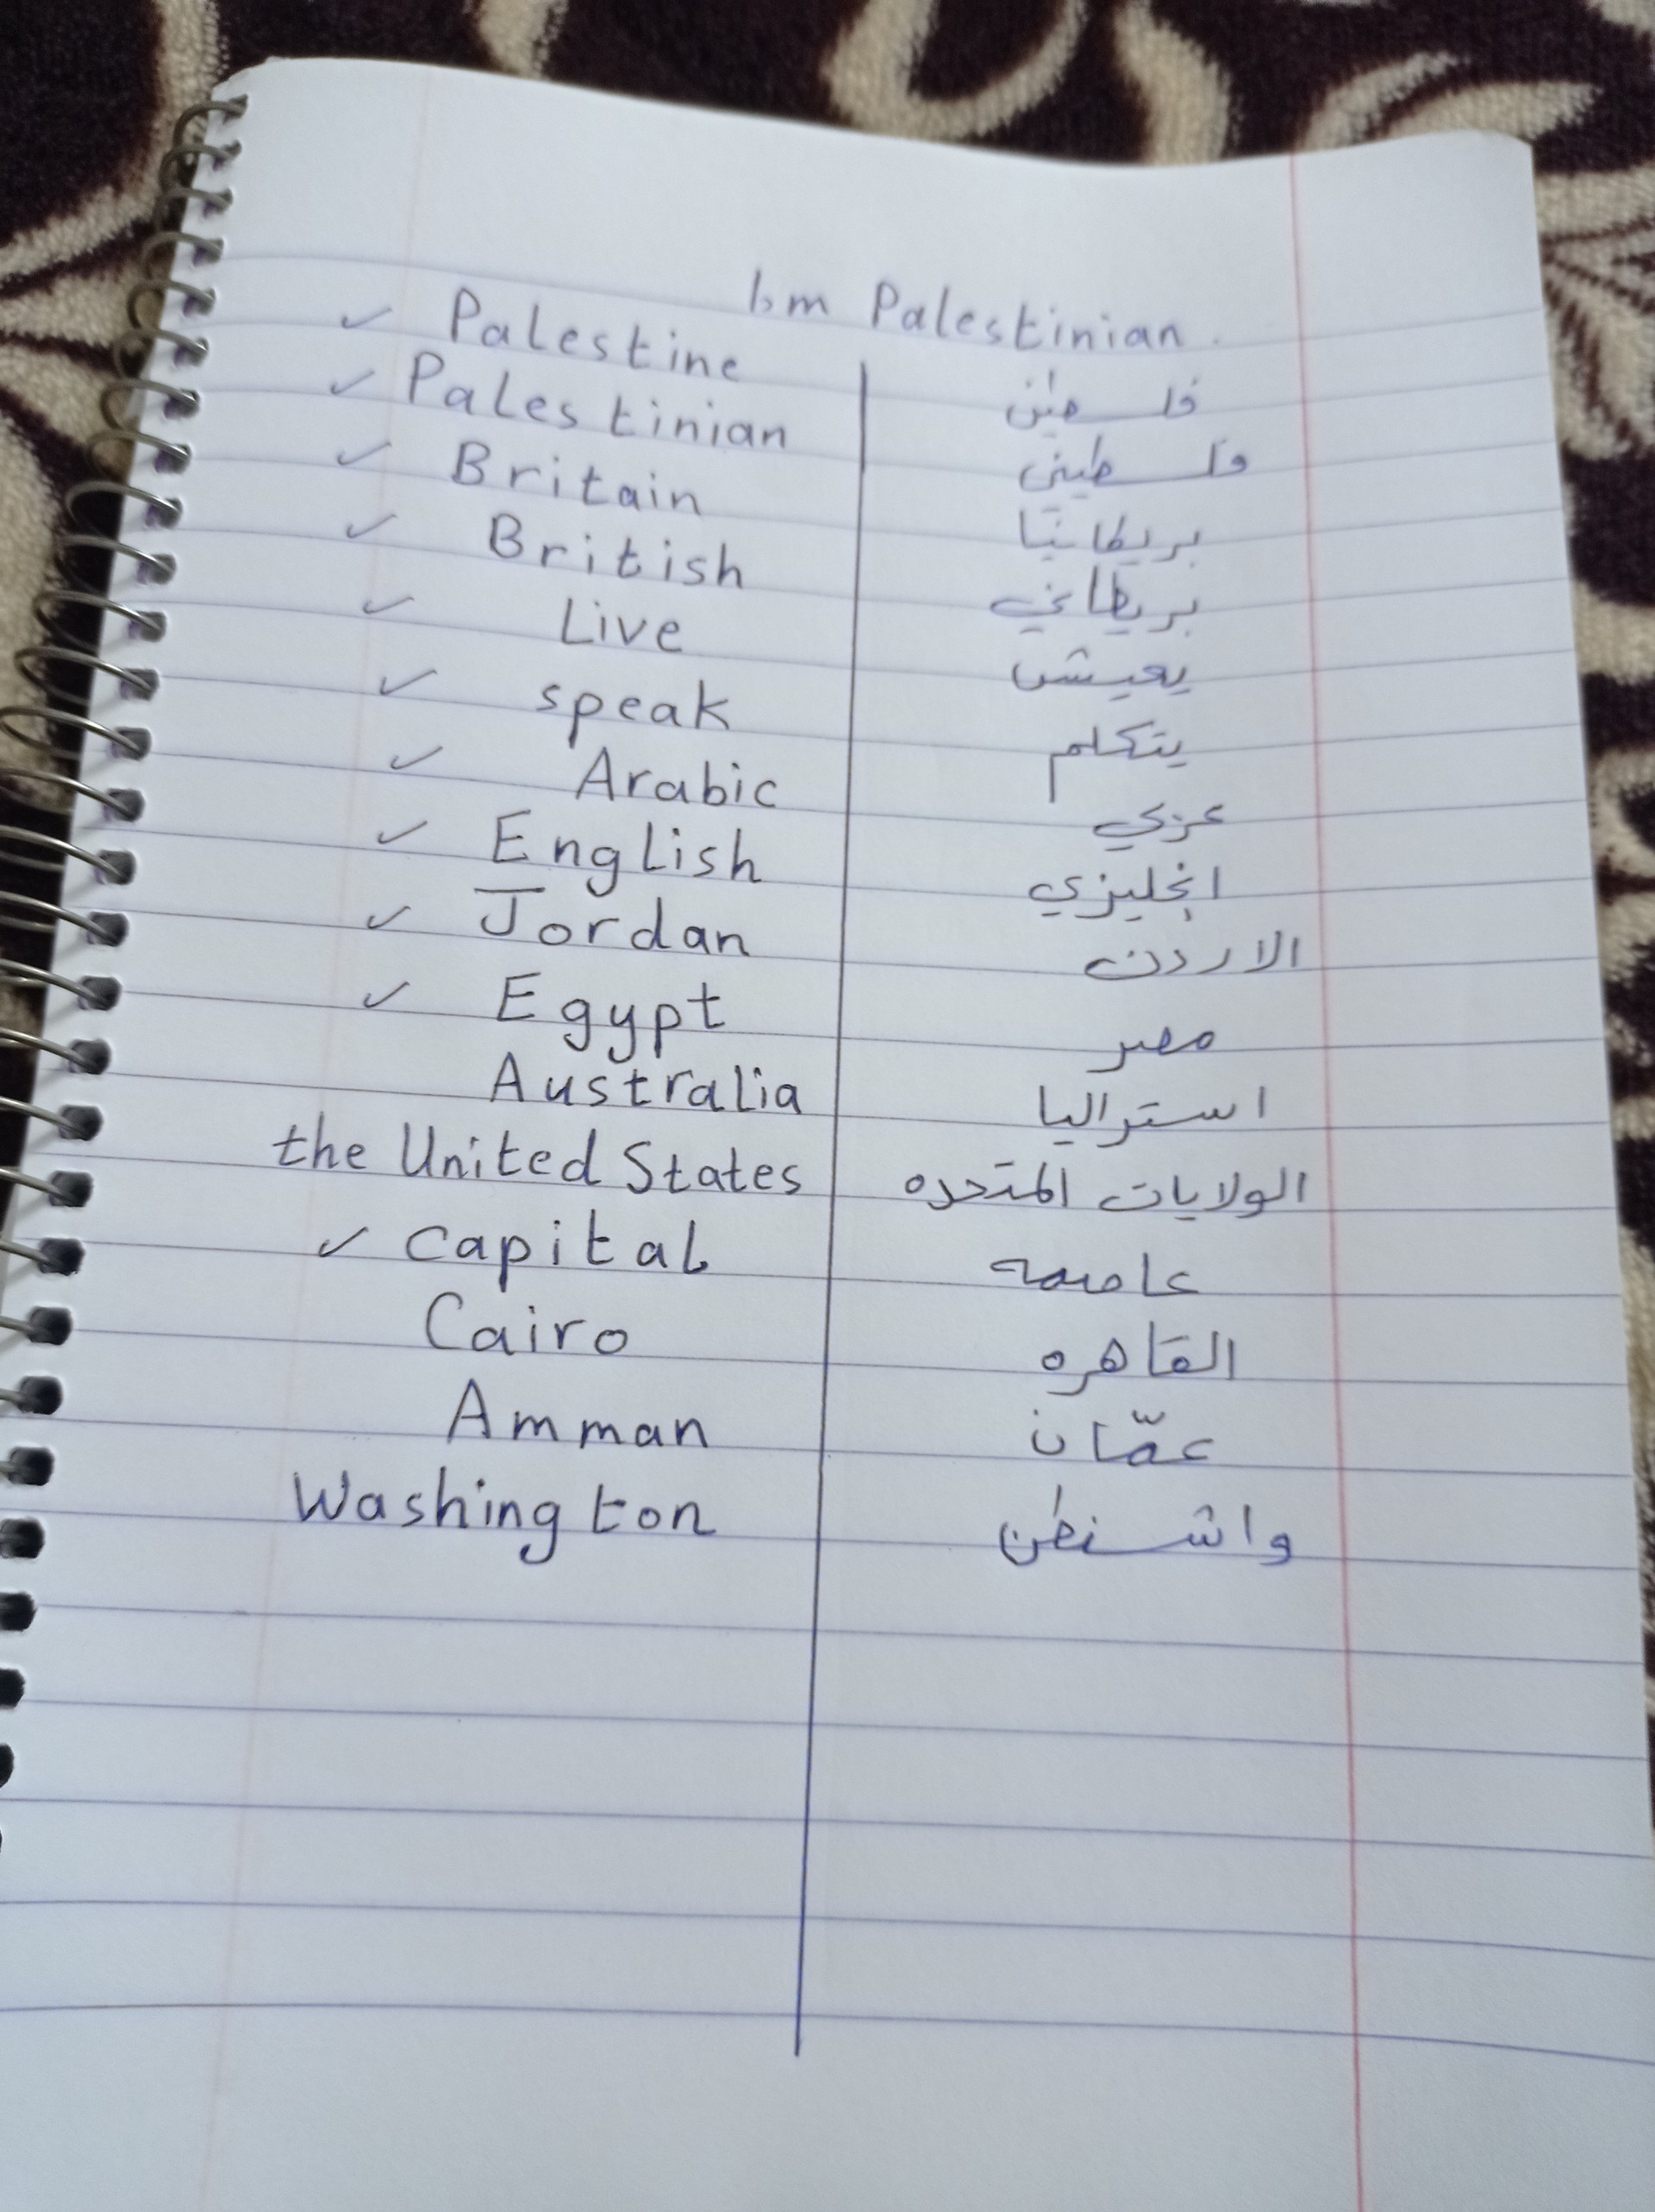 I'm Palestinian.
✓ Palestine فلسطين
✓ Palestinian فلسطيني
✓ Britain بريطانيا
✓ British بريطاني
✓ Live يعيش
✓ speak يتكلم
✓ Arabic عربي
✓ English انجليزي
✓ Jordan الاردن
✓ Egypt مصر
Australia استراليا
the United States الولايات المتحده
✓ capital عاصمه
Cairo القاهره
Amman عمّان
Washington واشنطن